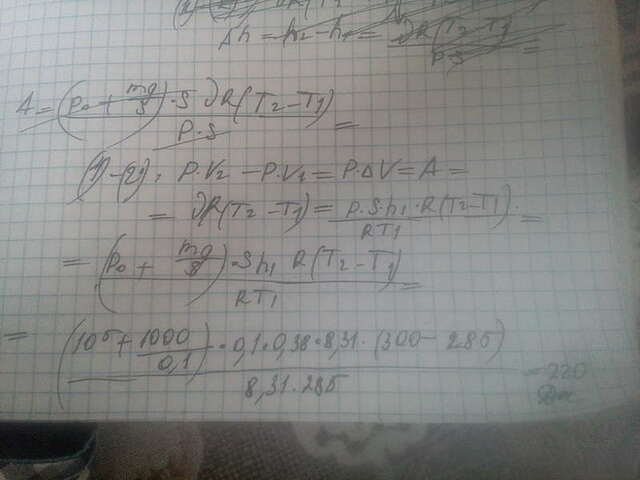 Δh = h₂ - h₁ = νR(T₂-T₁) / P·S =
A = (P₀ + mg/S)·S νR(T₂-T₁) / P·S =
(1)-(2): P·V₂ - P·V₁ = P·ΔV = A =
= νR(T₂-T₁) = P·S·h₁·R(T₂-T₁) / RT₁ =
= (P₀ + mg/S)·Sh₁ R(T₂-T₁) / RT₁ =
= (10⁵ + 1000/0,1)·0,1·0,38·8,31·(300-285) / 8,31·285 = 220 Дж